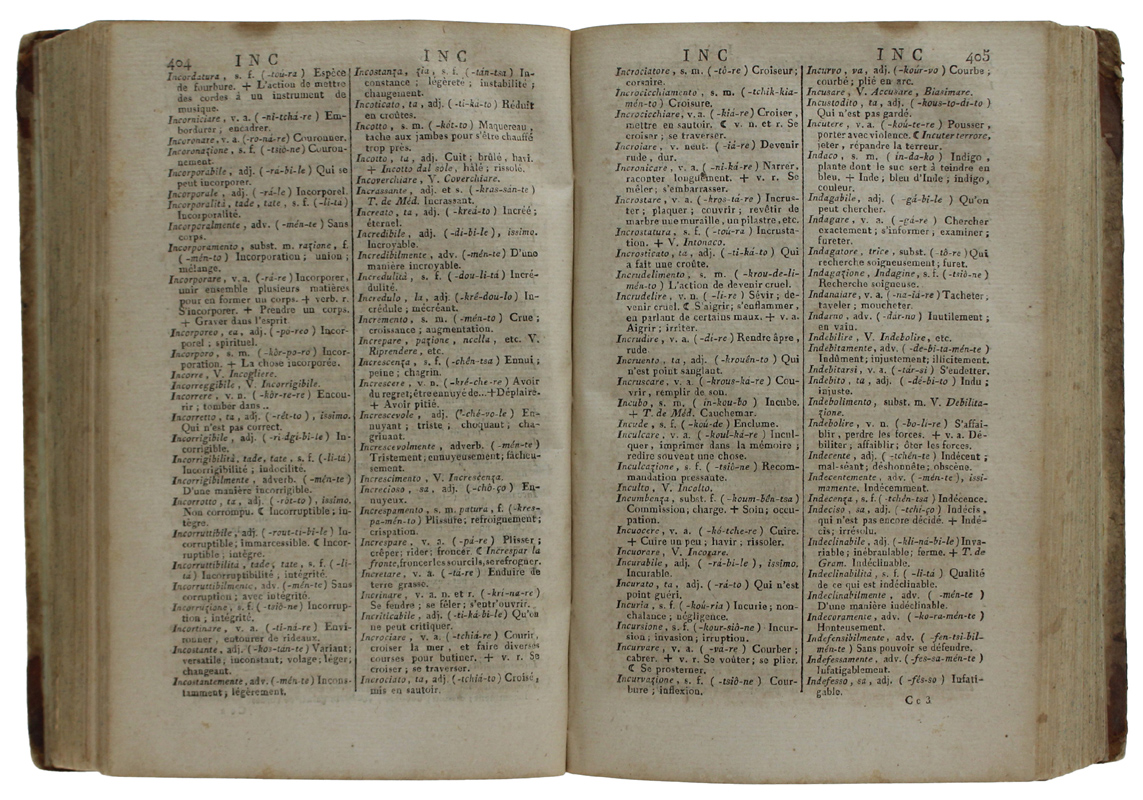 404
INC
INC
Incordatura, s. f. (-toú-ra) Espèce
de fourbure. + L'action de mettre
des cordes à un instrument de
musique.
Incorniciare, v. a. (-ni-tchá-re) Em-
bordurer, encadrer.
Incoronare, v. a. (-ro-ná-re) Couronner.
Incoronaƶione, s. f. (-tsió-ne) Couron-
nement.
Incorporabile, adj. (-rá-bi-le) Qui se
peut incorporer.
Incorporale, adj. (-rá-le) Incorporel.
Incorporalità, tade, tate, s. f. (-li-tá)
Incorporalité.
Incorporalmente, adv. (-mén-te) Sans
corps.
Incorporamento, subst. m. raƶione, f.
(-mén-to) Incorporation; union;
mélange.
Incorporare, v. a. (-rá-re) Incorporer,
unir ensemble plusieurs matières
pour en former un corps. + verb. r.
S'incorporer. + Prendre un corps.
+ Graver dans l'esprit.
Incorporeo, ea, adj. (-po-reo) Incor-
porel; spirituel.
Incorporo, s. m. (-kòr-po-ro) Incor-
poration. + La chose incorporée.
Incorre, V. Incogliere.
Incorreggibile, V. Incorrigibile.
Incorrere, v. n. (-kòr-re-re) Encou-
rir; tomber dans..
Incorretto, ta, adj. (-rét-to), issimo.
Qui n'est pas correct.
Incorrigibile, adj. (-ri-dgi-bi-le) In-
corrigible.
Incorrigibilità, tade, tate, s. f. (-li-tá)
Incorrigibilité; indocilité.
Incorrigibilmente, adverb. (-mén-te)
D'une manière incorrigible.
Incorrotto, ta, adj. (-rót-to), issimo.
Non corrompu. ☾ Incorruptible; in-
tègre.
Incorruttibile, adj. (-rout-ti-bi-le) In-
corruptible; immarcessible. ☾ Incor-
ruptible; intègre.
Incorruttibilità, tade, tate, s. f. (-li-
tá) Incorruptibilité; intégrité.
Incorruttibilmente, adv. (-mén-te) Sans
corruption; avec intégrité.
Incorruƶione, s. f. (-tsió-ne) Incorrup-
tion; intégrité.
Incortinare, v. a. (-ti-ná-re) Envi-
ronner, entourer de rideaux.
Incostante, adj. (-kos-tán-te) Variant;
versatile; inconstant; volage; léger;
changeant.
Incostantemente, adv. (-mén-te) Incons-
tamment; légèrement.
Incostanƶa, ƶia, s. f. (-tán-tsa) In-
constance; légèreté; instabilité;
changement.
Incoticato, ta, adj. (-ti-ka-to) Réduit
en croûtes.
Incotto, s. m. (-kót-to) Maquereau,
tache aux jambes pour s'être chauffé
trop près.
Incotto, ta, adj. Cuit; brûlé, havi.
+ Incotto dal sole, hâlé; rissolé.
Incoverchiare, V. Coverchiare.
Incrassante, adj. et s. (-kras-sán-te)
T. de Méd. Incrassant.
Increato, ta, adj. (-kreá-to) Incréé;
éternel.
Incredibile, adj. (-di-bi-le), issimo.
Incroyable.
Incredibilmente, adv. (-mén-te) D'une
manière incroyable.
Incredulità, s. f. (-dou-li-tá) Incré-
dulité.
Incredulo, la, adj. (-kré-dou-lo) In-
crédule; mécréant.
Incremento, s. m. (-mén-to) Crue;
croissance; augmentation.
Increpare, paƶione, ncella, etc. V.
Riprendere, etc.
Increscenƶa, s. f. (-chén-tsa) Ennui;
peine; chagrin.
Increscere, v. n. (-kré-che-re) Avoir
du regret; être ennuyé de...+ Déplaire.
+ Avoir pitié.
Increscevole, adj. (-ché-vo-le) En-
nuyant; triste; choquant; cha-
grinant.
Increscevolmente, adverb. (-mén-te)
Tristement; ennuyeusement; fâcheu-
sement.
Increscimento, V. Increscenƶa.
Increscioso, sa, adj. (-chó-ço) En-
nuyeux.
Increspamento, s. m. patura, f. (-kres-
pa-mén-to) Plissure; refroignement;
crispation.
Increspare, v. a. (-pá-re) Plisser;
crêper; rider; froncer. ☾ Increspar la
fronte, froncer les sourcils, se refrogner.
Incretare, v. a. (-tá-re) Enduire de
terre grasse.
Incrinare, v. a. n. et r. (-kri-na-re)
Se fendre; se fêler; s'entr'ouvrir.
Incriticabile, adj. (-ti-ká-bi-le) Qu'on
ne peut critiquer.
Incrociare, v. a. (-tchiá-re) Courir,
croiser la mer, et faire diverses
courses pour butiner. + v. r. Se
croiser; se traverser.
Incrociato, ta, adj. (-tchiá-to) Croisé,
mis en sautoir.
INC
INC
405
Incrociatore, s. m. (-tô-re) Croiseur;
corsaire.
Incrocicchiamento, s. m. (-tchik-kia-
mén-to) Croisure.
Incrocicchiare, v. a. (-kia-re) Croiser,
mettre en sautoir. ☾ v. n. et r. Se
croiser; se traverser.
Incroiare, v. neut. (-iá-re) Devenir
rude, dur.
Incronicare, v. a. (-ni-ká-re) Narrer,
raconter longuement. + v. r. Se
mêler; s'embarrasser.
Incrostare, v. a. (-kros-tá-re) Incrus-
ter; plaquer; couvrir; revêtir de
marbre une muraille, un pilastre, etc.
Incrostatura, s. f. (-toú-ra) Incrusta-
tion. + V. Intonaco.
Incrosticato, ta, adj. (-ti-ká-to) Qui
a fait une croûte.
Incrudelimento, s. m. (-krou-de-li-
mén-to) L'action de devenir cruel.
Incrudelire, v. n. (-li-re) Sévir; de-
venir cruel. ☾ S'aigrir; s'enflammer,
en parlant de certains maux. + v. a.
Aigrir; irriter.
Incrudire, v. a. (-di-re) Rendre âpre,
rude.
Incruento, ta, adj. (-krouén-to) Qui
n'est point sanglant.
Incruscare, v. a. (-krous-ka-re) Cou-
vrir, remplir de son.
Incubo, s. m. (in-kou-bo) Incube.
+ T. de Méd. Cauchemar.
Incude, s. f. (-koú-de) Enclume.
Inculcare, v. a. (-koul-ká-re) Incul-
quer, imprimer dans la mémoire;
redire souvent une chose.
Inculcaƶione, s. f. (-tsiô-ne) Recom-
mandation pressante.
Inculto, V. Incolto.
Incumbenƶa, subst. f. (-koum-bén-tsa)
Commission; charge. + Soin; occu-
pation.
Incuocere, v. a. (-kó-tche-re) Cuire.
+ Cuire un peu; havir; rissoler.
Incuorare, V. Incorare.
Incurabile, adj. (-rá-bi-le), issimo.
Incurable.
Incurato, ta, adj. (-rá-to) Qui n'est
point guéri.
Incuria, s. f. (-koú-ria) Incurie; non-
chalance; négligence.
Incursione, s. f. (-kour-siò-ne) Incur-
sion; invasion; irruption.
Incurvare, v. a. (-va-re) Courber;
cabrer. + v. r. Se voûter; se plier.
☾ Se prosterner.
Incurvaƶione, s. f. (-tsiô-ne) Cour-
bure; inflexion.
Incurvo, va, adj. (-koúr-vo) Courbe;
courbé; plié en arc.
Incusare, V. Accusare, Biasimare.
Incustodito, ta, adj. (-kous-to-di-to)
Qui n'est pas gardé.
Incutere, v. a. (-koú-te-re) Pousser,
porter avec violence. ☾ Incuter terrore,
jeter, répandre la terreur.
Indaco, s. m. (in-da-ko) Indigo,
plante dont le suc sert à teindre en
bleu. + Inde, bleu d'Inde; indigo,
couleur.
Indagabile, adj. (-gá-bi-le) Qu'on
peut chercher.
Indagare, v. a. (-gá-re) Chercher
exactement; s'informer; examiner;
fureter.
Indagatore, trice, subst. (-tô-re) Qui
recherche soigneusement; furet.
Indagaƶione, Indagine, s. f. (-tsiò-ne)
Recherche soigneuse.
Indanaiare, v. a. (-na-iá-re) Tacheter,
taveler; moucheter.
Indarno, adv. (-dár-no) Inutilement;
en vain.
Indebilire, V. Indebolire, etc.
Indebitamente, adv. (-de-bi-ta-mén-te)
Indûment; injustement; illicitement.
Indebitarsi, v. a. (-tár-si) S'endetter.
Indebito, ta, adj. (-dé-bi-to) Indu;
injuste.
Indebolimento, subst. m. V. Debilita-
ƶione.
Indebolire, v. n. (-bo-li-re) S'affai-
blir, perdre les forces. + v. a. Dé-
biliter; affaiblir; ôter les forces.
Indecente, adj. (-tchén-te) Indécent;
mal-séant; déshonnête; obscène.
Indecentemente, adv. (-mén-te), issi-
mamente. Indécemment.
Indecenƶa, s. f. (-tchén-tsa) Indécence.
Indeciso, sa, adj. (-tchi-ço) Indécis,
qui n'est pas encore décidé. + Indé-
cis; irrésolu.
Indeclinabile, adj. (-kli-ná-bi-le) Inva-
riable; inébranlable; ferme. + T. de
Gram. Indéclinable.
Indeclinabilità, s. f. (-li-tá) Qualité
de ce qui est indéclinable.
Indeclinabilmente, adv. (-mén-te)
D'une manière indéclinable.
Indecoramente, adv. (-ko-ra-mén-te)
Honteusement.
Indefensibilmente, adv. (-fen-tsi-bil-
mén-te) Sans pouvoir se défendre.
Indefessamente, adv. (-fes-sa-mén-te)
Infatigablement.
Indefesso, sa, adj. (-fés-so) Infati-
gable.
Cc 3